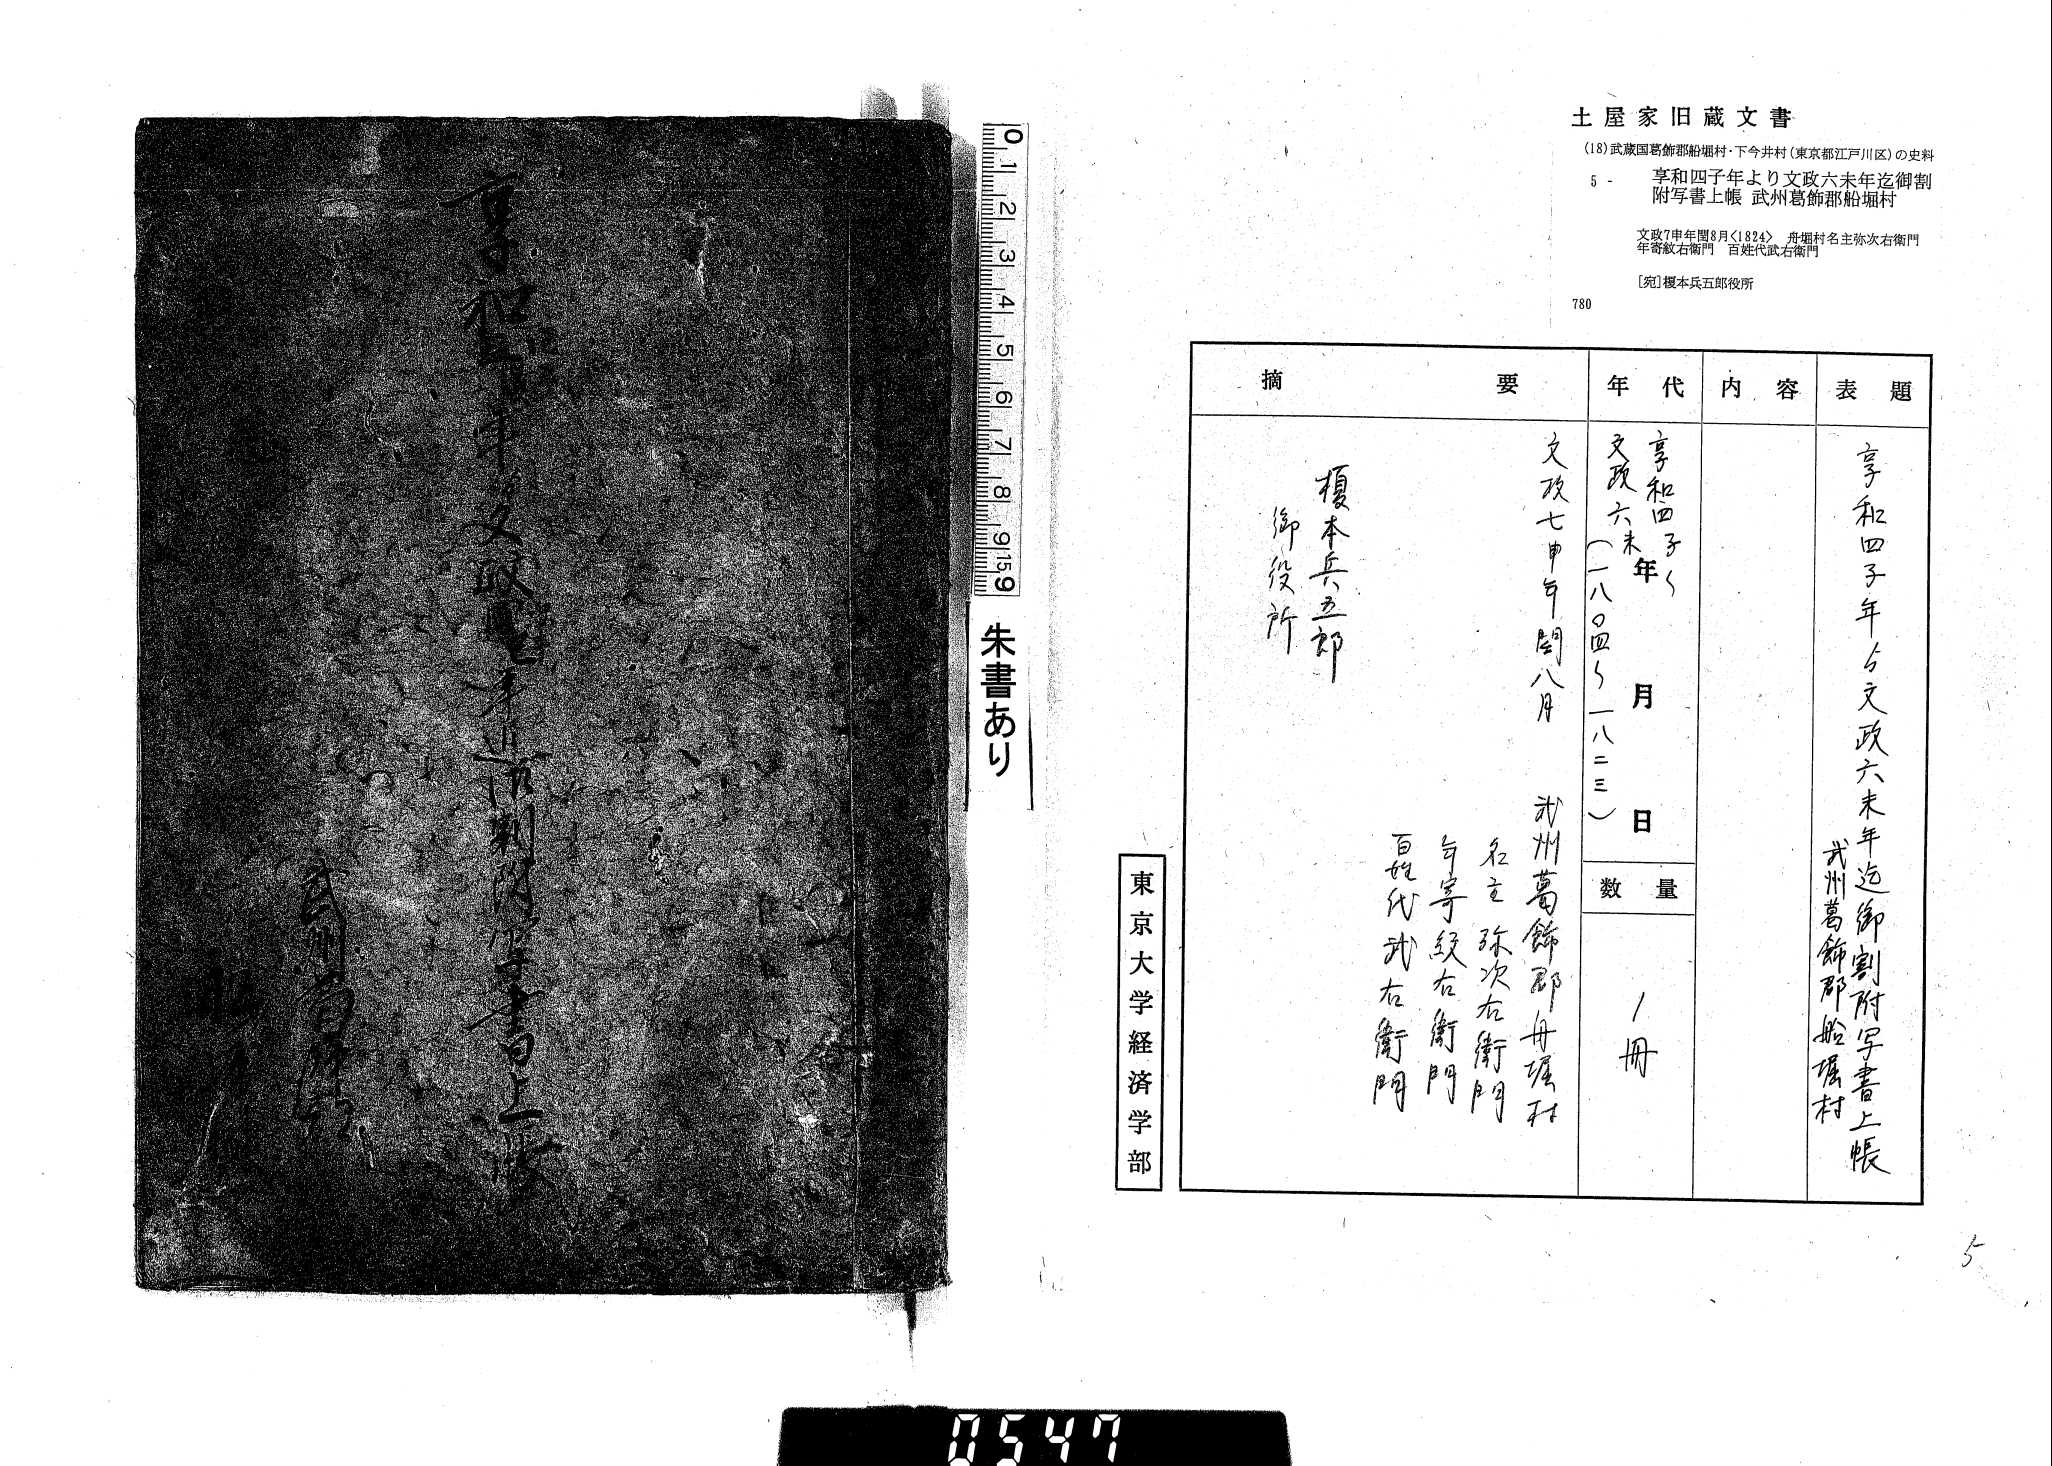 土屋家旧蔵文書
(18)武蔵国葛飾郡船堀村・下今井村(東京都江戸川区)の史料
5 - 享和四子年より文政六未年迄御割
附写書上帳 武州葛飾郡船堀村
文政7申年閏8月<1824> 舟堀村名主弥次右衛門
年寄紋右衛門 百姓代武右衛門
[宛]榎本兵五郎役所
780
表題
享和四子年ゟ文政六未年迄御割附写書上帳
武州葛飾郡船堀村
内容
年代
享和四子〜
文政六未
年 月 日
(一八〇四〜一八二三)
数量
1冊
摘要
文政七申年閏八月
武州葛飾郡舟堀村
名主 弥次右衛門
年寄 紋右衛門
百姓代 武右衛門
榎本兵五郎
御役所
東京大学経済学部
5
0 1 2 3 4 5 6 7 8 9 15 9
朱書あり
享和四子年ゟ文政六未年迄御割附写書上帳
武州葛飾郡
船堀
0547